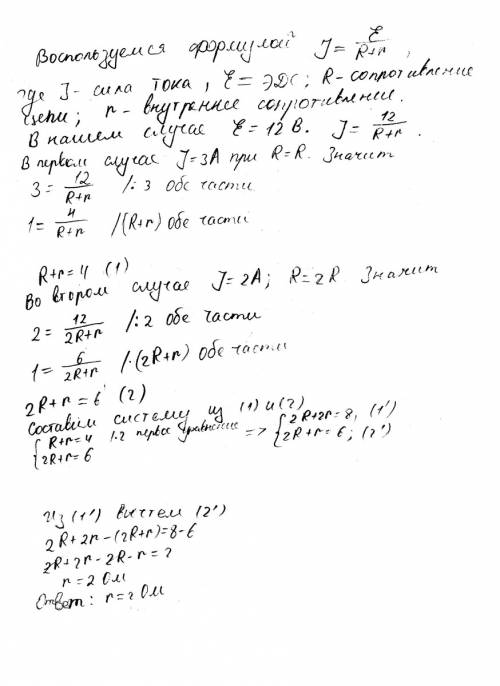 Воспользуемся формулой J = ℰ/(R+r),
где J - сила тока, ℰ = ЭДС; R - сопротивление
цепи; r - внутреннее сопротивление.
В нашем случае ℰ = 12 В. J = 12/(R+r).
В первом случае J=3A при R=R. Значит
3 = 12/(R+r) /:3 обе части
1 = 4/(R+r) /·(R+r) обе части
R+r=4 (1)
Во втором случае J=2A; R=2R. Значит
2 = 12/(2R+r) /:2 обе части
1 = 6/(2R+r) /·(2R+r) обе части
2R+r=6 (2)
Составим систему из (1) и (2)
{R+r=4 /·2 первое уравнение => {2R+2r=8, (1')
{2R+r=6 {2R+r=6; (2')
Из (1') вычтем (2')
2R+2r-(2R+r)=8-6
2R+2r-2R-r=2
r=2 Ом
Ответ: r=2 Ом